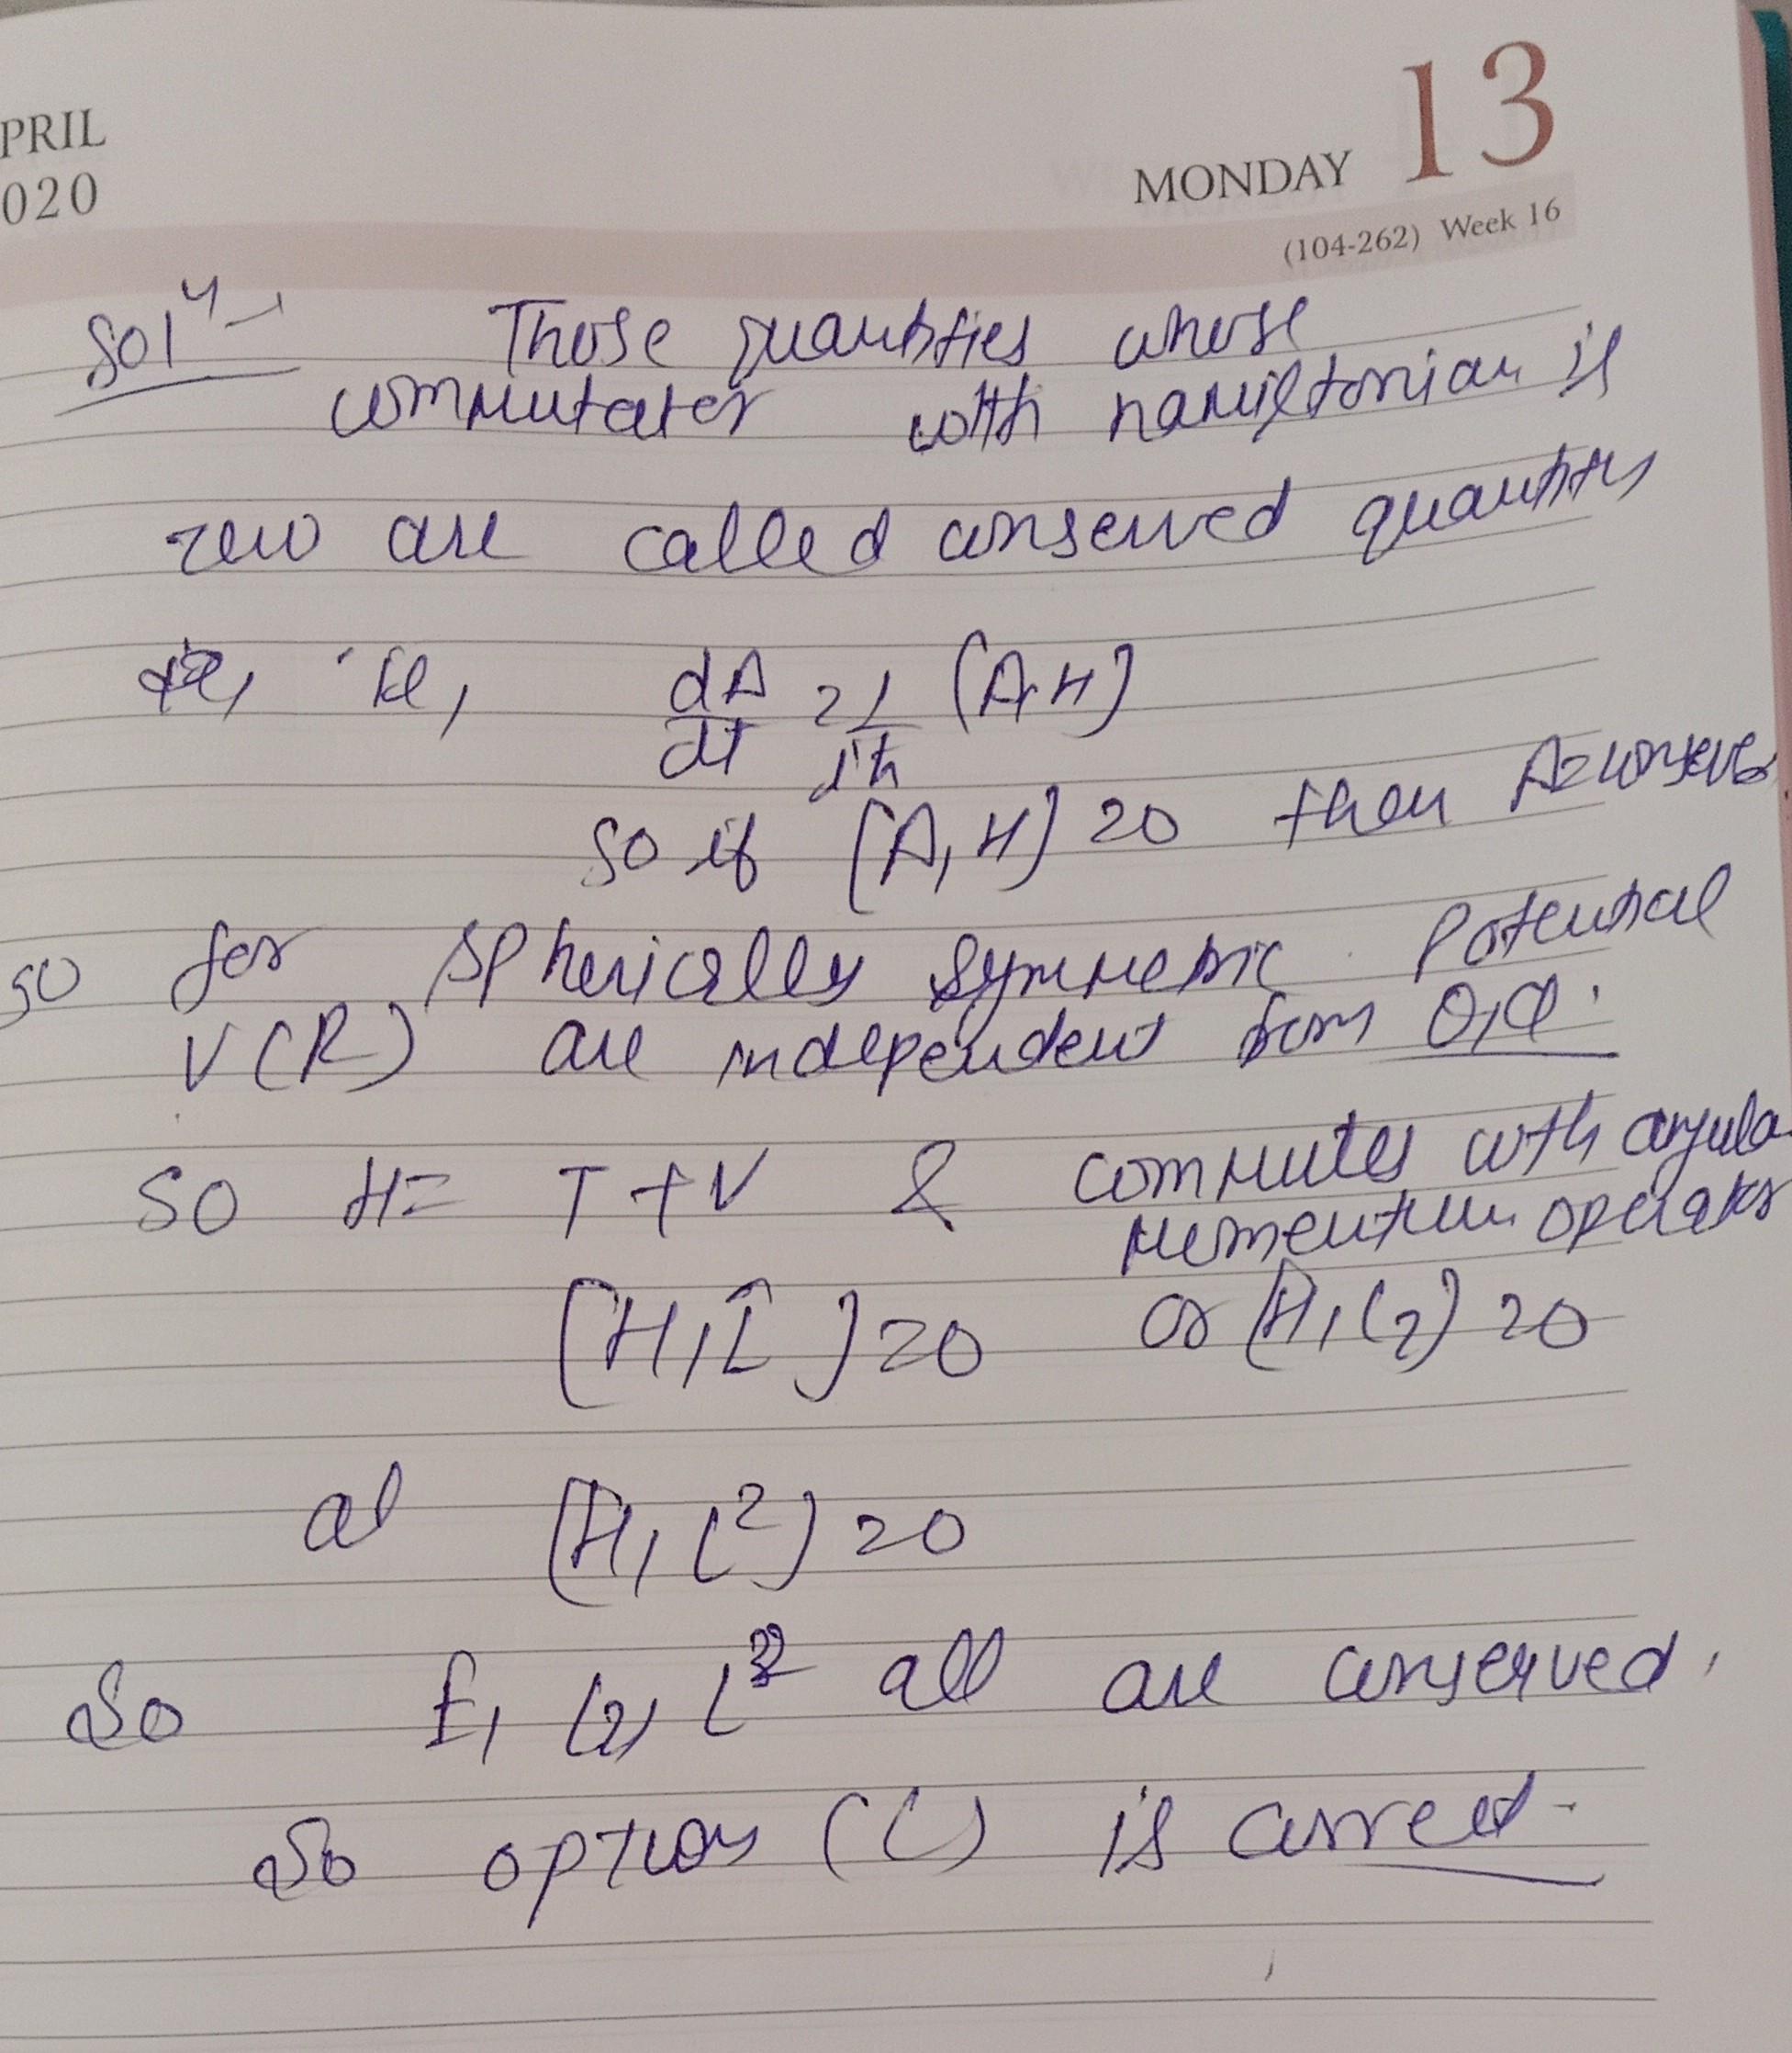 PRIL
020
MONDAY 13
(104-262) Week 16
Solⁿ → Those quantities whose
commutator with hamiltonian is
zero are called conserved quantities
ie, dA/dt = 1/iħ [A, H]
so if [A, H] = 0 then A = conserve
so for spherically symmetric potential
V(R) are independent from θ, φ.
so H = T + V & commutes with angula
momentum operator
[H, L̂] = 0 or [H, Lz] = 0
[H, L²] = 0
So E, Lz, L² all are conserved.
So option (C) is correct.